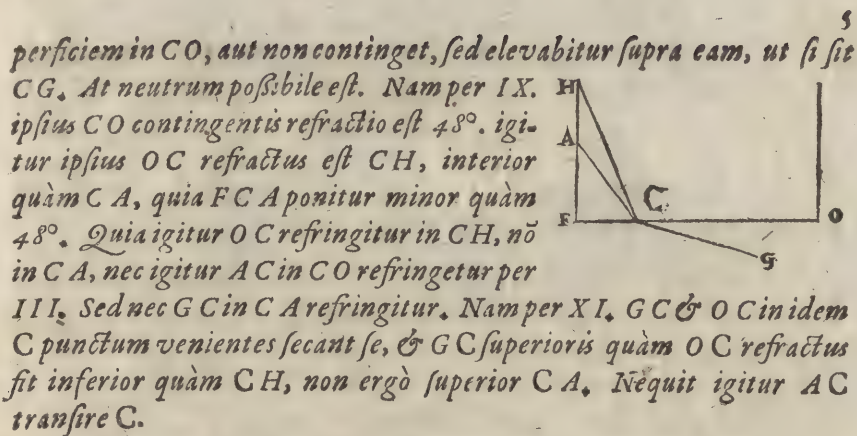 5
perficiem in CO, aut non continget, ſed elevabitur ſupra eam, ut ſi ſit
CG. At neutrum poſsibile eſt. Nam per IX.
ipſius CO contingentis refractio eſt 48°. igi-
tur ipſius OC refractus eſt CH, interior
quàm CA, quia FCA ponitur minor quàm
48°. Quia igitur OC refringitur in CH, nō
in CA, nec igitur AC in CO refringetur per
III. Sed nec GC in CA refringitur. Nam per XI. GC & OC in idem
C punctum venientes ſecant ſe, & GC ſuperioris quàm OC refractus
fit inferior quàm CH, non ergò ſuperior CA. Nequit igitur AC
tranſire C.
H
A
C
F
O
G